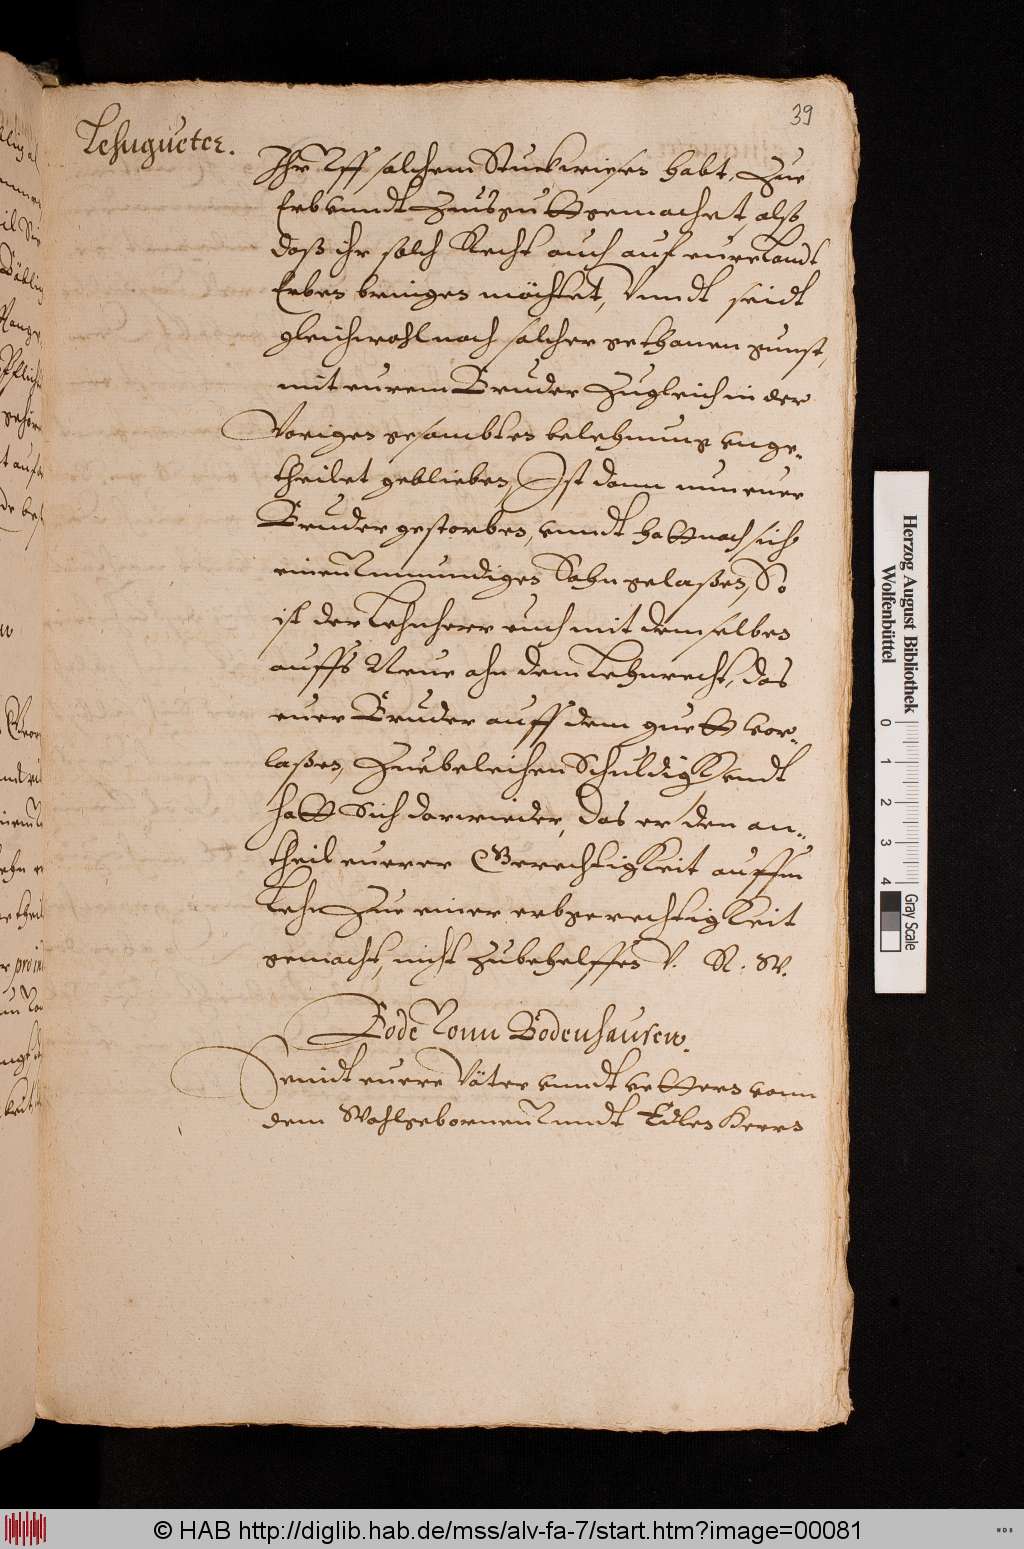 39
Lehngueter.
Ihr Uff solchem Stuck wiesen habt, Zue
Erb unndt Zinsgutt gemachet, alß
daß ihr solch Recht auch auf eure Landt
Erben bringen möchtet, Unndt seidt
gleichwohl nach solcher gethanen gunst,
mit eurem Bruder Zugleich in der
Vorigen gesambten belehnung unge-
theilet geblieben, Ist dann nun euer
Bruder gestorben, unndt hatt nach sich
einen Unmundigen Sohn gelaßen, So
ist der Lehnherr euch mit demselben
auffs Neue ahn dem Lehnrecht, das
euer Bruder auff dem guett vor-
laßen, Zue beleihen Schuldig Unndt
hatt Sich darwieder, das er den an-
theil euerer Gerechtigkeit auffm
Lehn Zue einer erbgerechtigkeit
gemacht, nicht zubehelffen V. R. W.
Bode Vonn Bodenhausenn.
Seindt euere Väter unndt Vettern vonn
dem Wohlgebornen Unndt Edlen Herrn
pro ind
Herzog August Bibliothek
Wolfenbüttel
0 1 2 3 4
Gray Scale
© HAB http://diglib.hab.de/mss/alv-fa-7/start.htm?image=00081